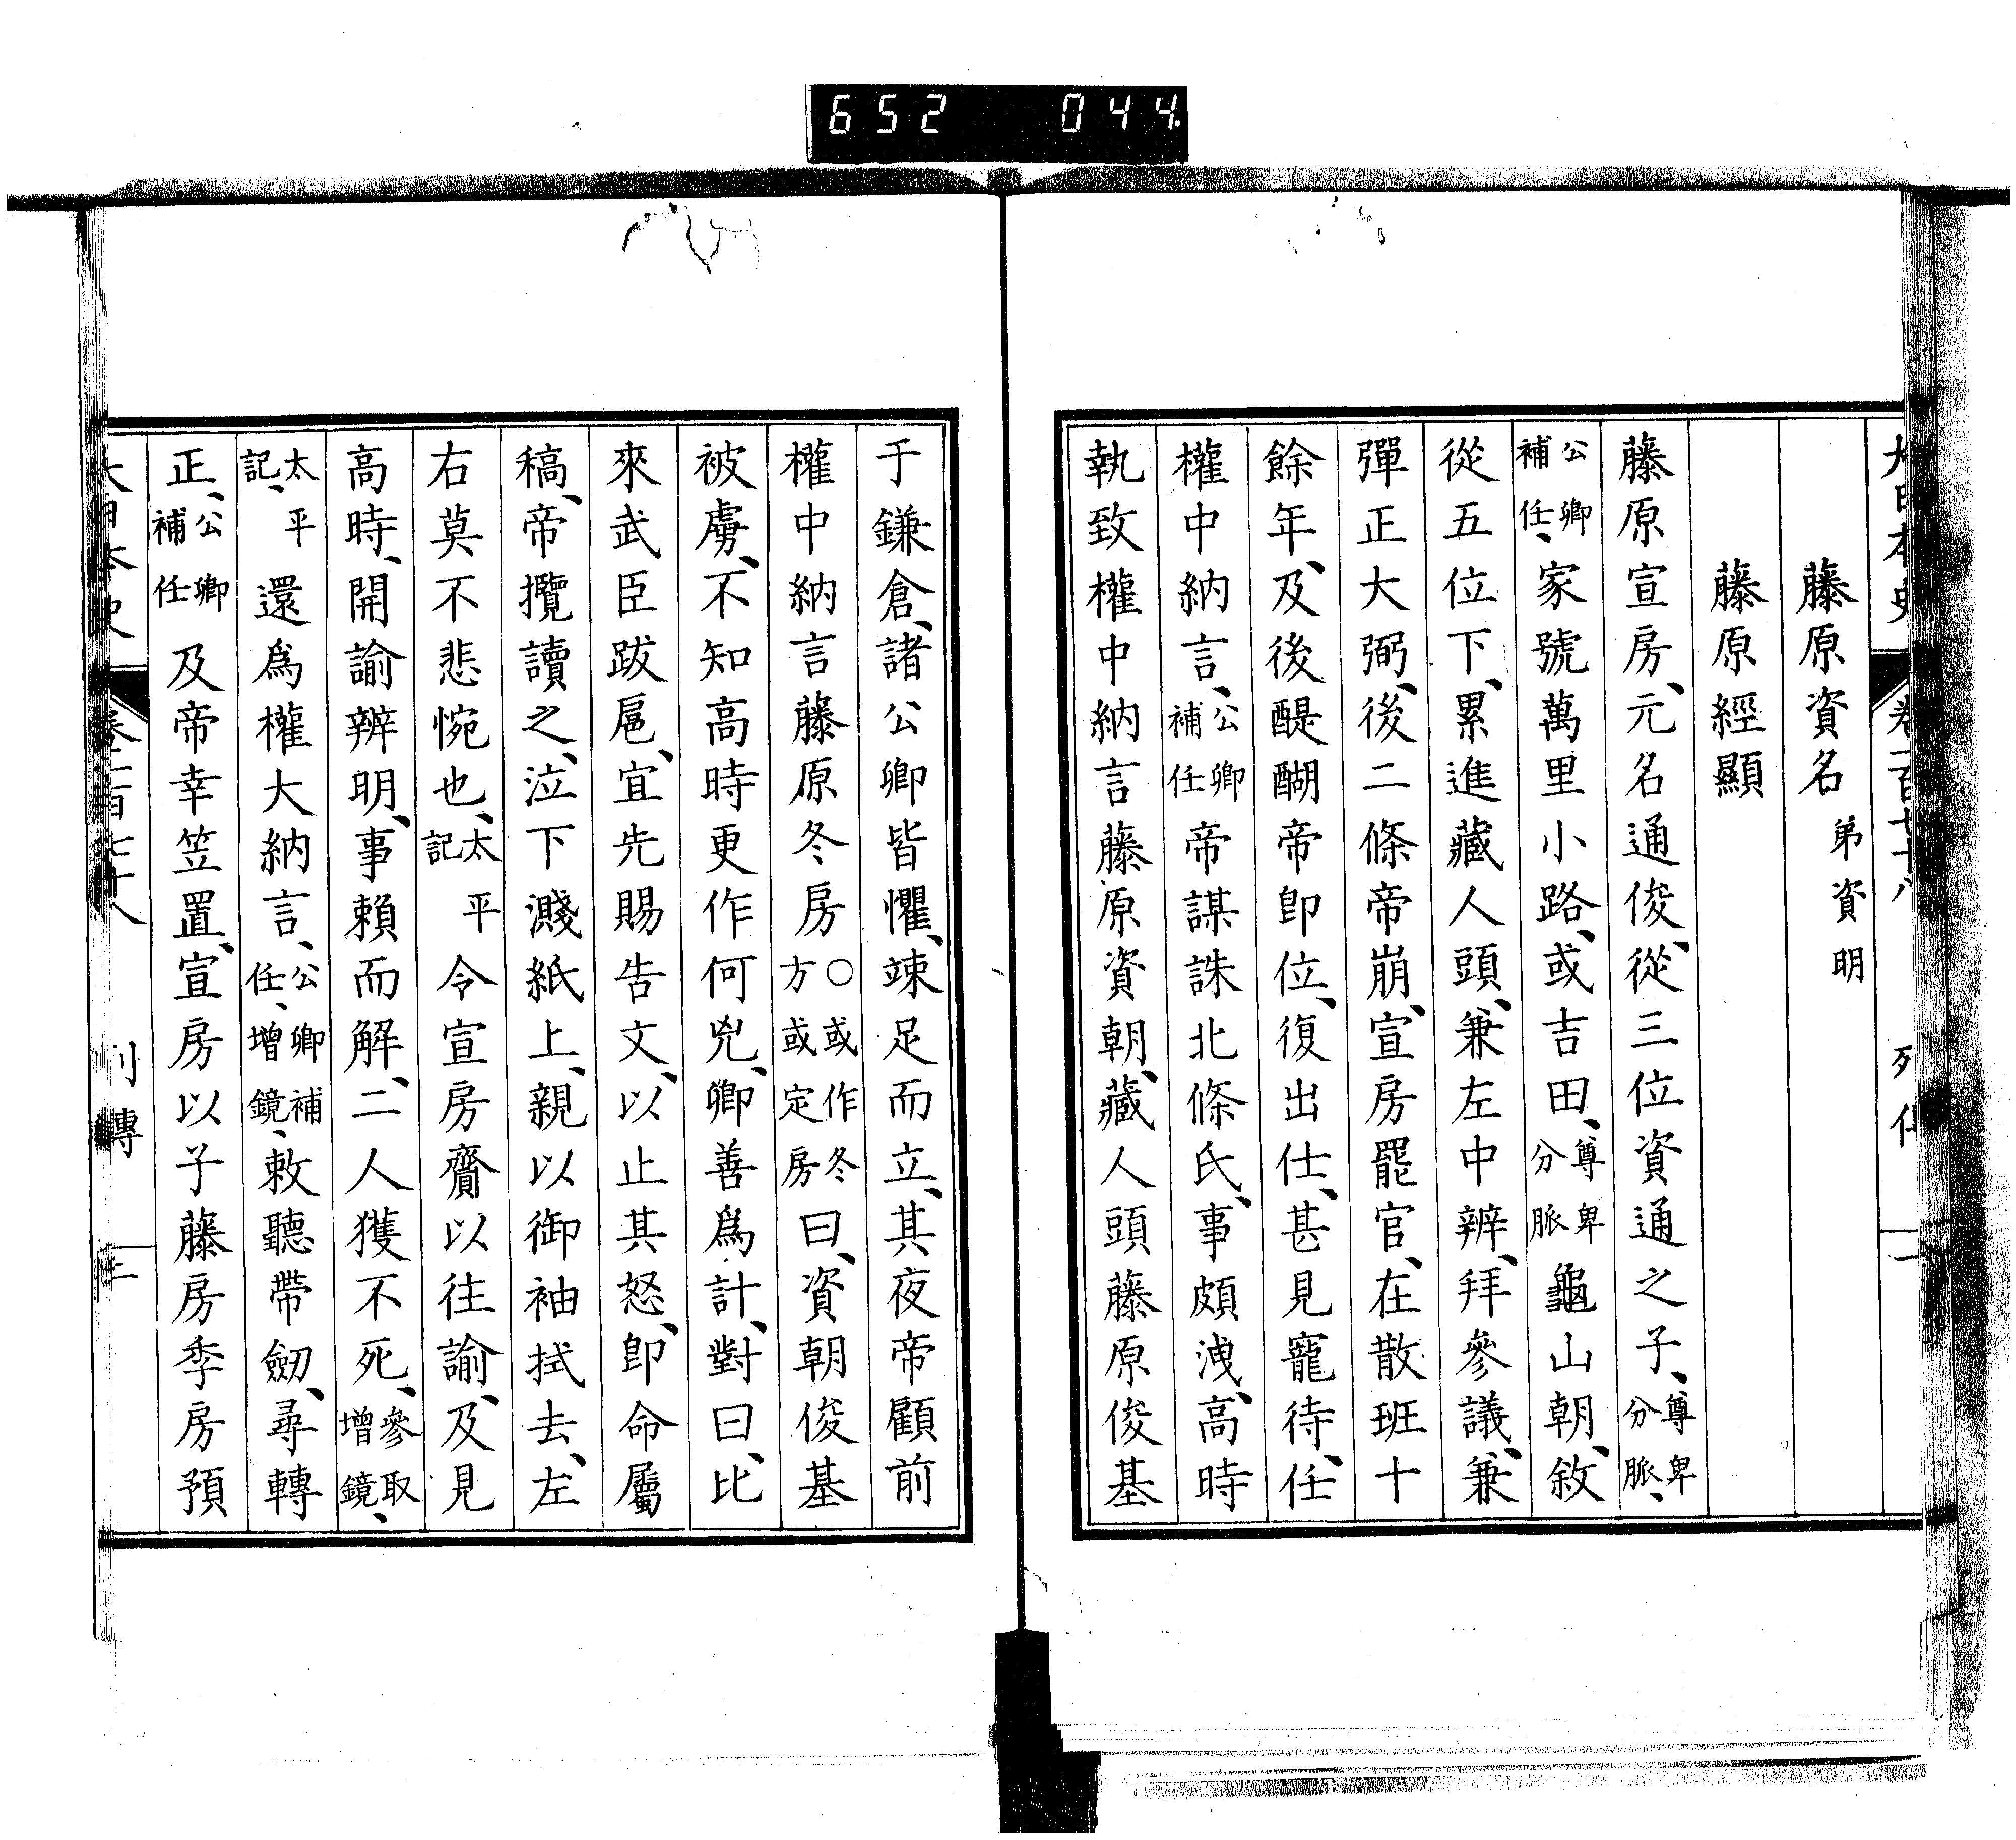 652 044
藤原資名 弟資明
藤原經顯
藤原宣房、元名通俊、從三位資通之子、尊卑分脈、
公卿補任、家號萬里小路、或吉田、尊卑分脈龜山朝、敘
從五位下、累進藏人頭、兼左中辨、拜參議、兼
彈正大弼、後二條帝崩、宣房罷官、在散班十
餘年、及後醍醐帝卽位、復出仕、甚見寵待、任
權中納言、公卿補任帝謀誅北條氏、事頗洩、高時
執致權中納言藤原資朝、藏人頭藤原俊基
于鎌倉、諸公卿皆懼、竦足而立、其夜帝顧前
權中納言藤原冬房○或作冬方或定房曰、資朝俊基
被虜、不知高時更作何兇、卿善爲計、對曰、比
來武臣跋扈、宜先賜告文、以止其怒、卽命屬
稿、帝攬讀之、泣下濺紙上、親以御袖拭去、左
右莫不悲惋也、太平記令宣房齎以往諭、及見
高時、開諭辨明、事賴而解、二人獲不死、參取增鏡、
太平記、還爲權大納言、公卿補任、增鏡、敕聽帶劒、尋轉
正、公卿補任及帝幸笠置、宣房以子藤房季房預